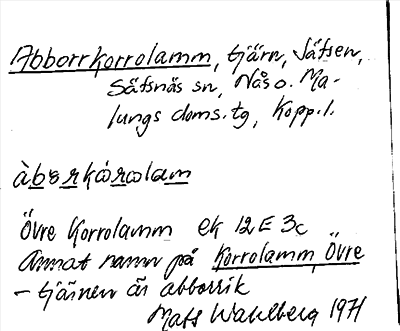 Abborrkorrolamm, tjärn, Säfsen,
Säfsnäs sn, Nås o. Ma-
lungs doms.tg, Kopp.l.
àbɔrkórolam
Övre Korrolamm ek 12E 3c
Annat namn på Korrolamm, Övre
– tjärnen är abborrik
Mats Wahlberg 1971